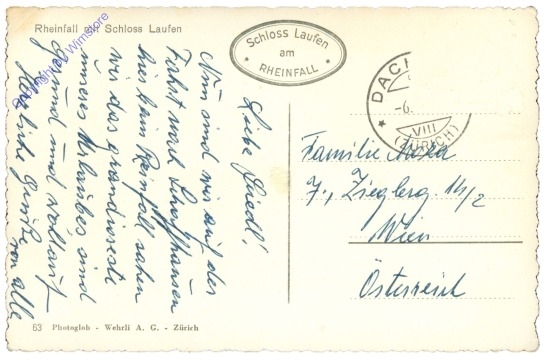 Rheinfall mit Schloss Laufen
Schloss Laufen
am
RHEINFALL
DACH
-6.
VIII
(ZÜRICH)
Liebe Friedl!
Nun sind wir auf der
Fahrt nach Schaffhausen
hier beim Rheinfall sahen
wir das grandioseste
unseres Urlaubes sind
gesund und wohlauf.
Herzliche Grüße von alle
Familie
Ziegler
Wien
Österreich
63 Photoglob - Wehrli A. G. - Zürich
Winstore